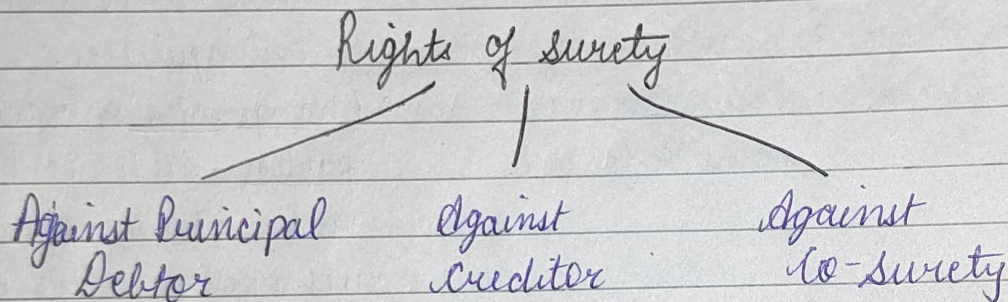 Rights of surety
Against Principal Debtor
Against Creditor
Against Co-surety